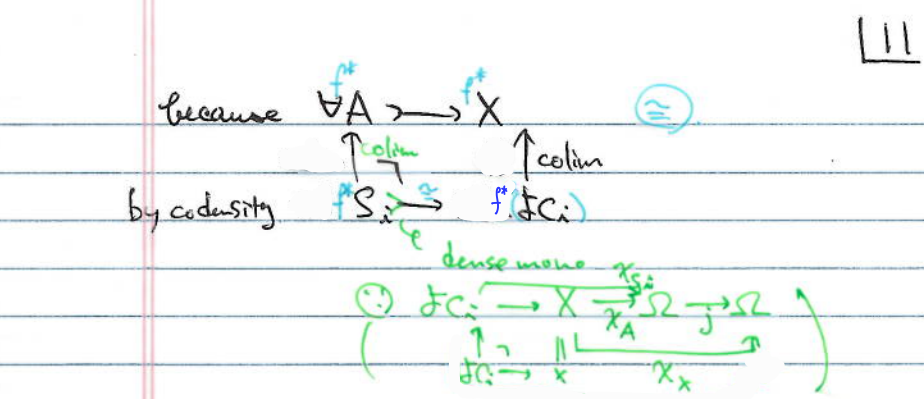 11
because f* ∀A ↣ f* X ≅
colim colim
by codensity f* S_i ≅ f*(よC_i)
dense mono χ_{S_i}
よC_i → X → Ω → Ω
χ_A j
よC_i → X χ_X